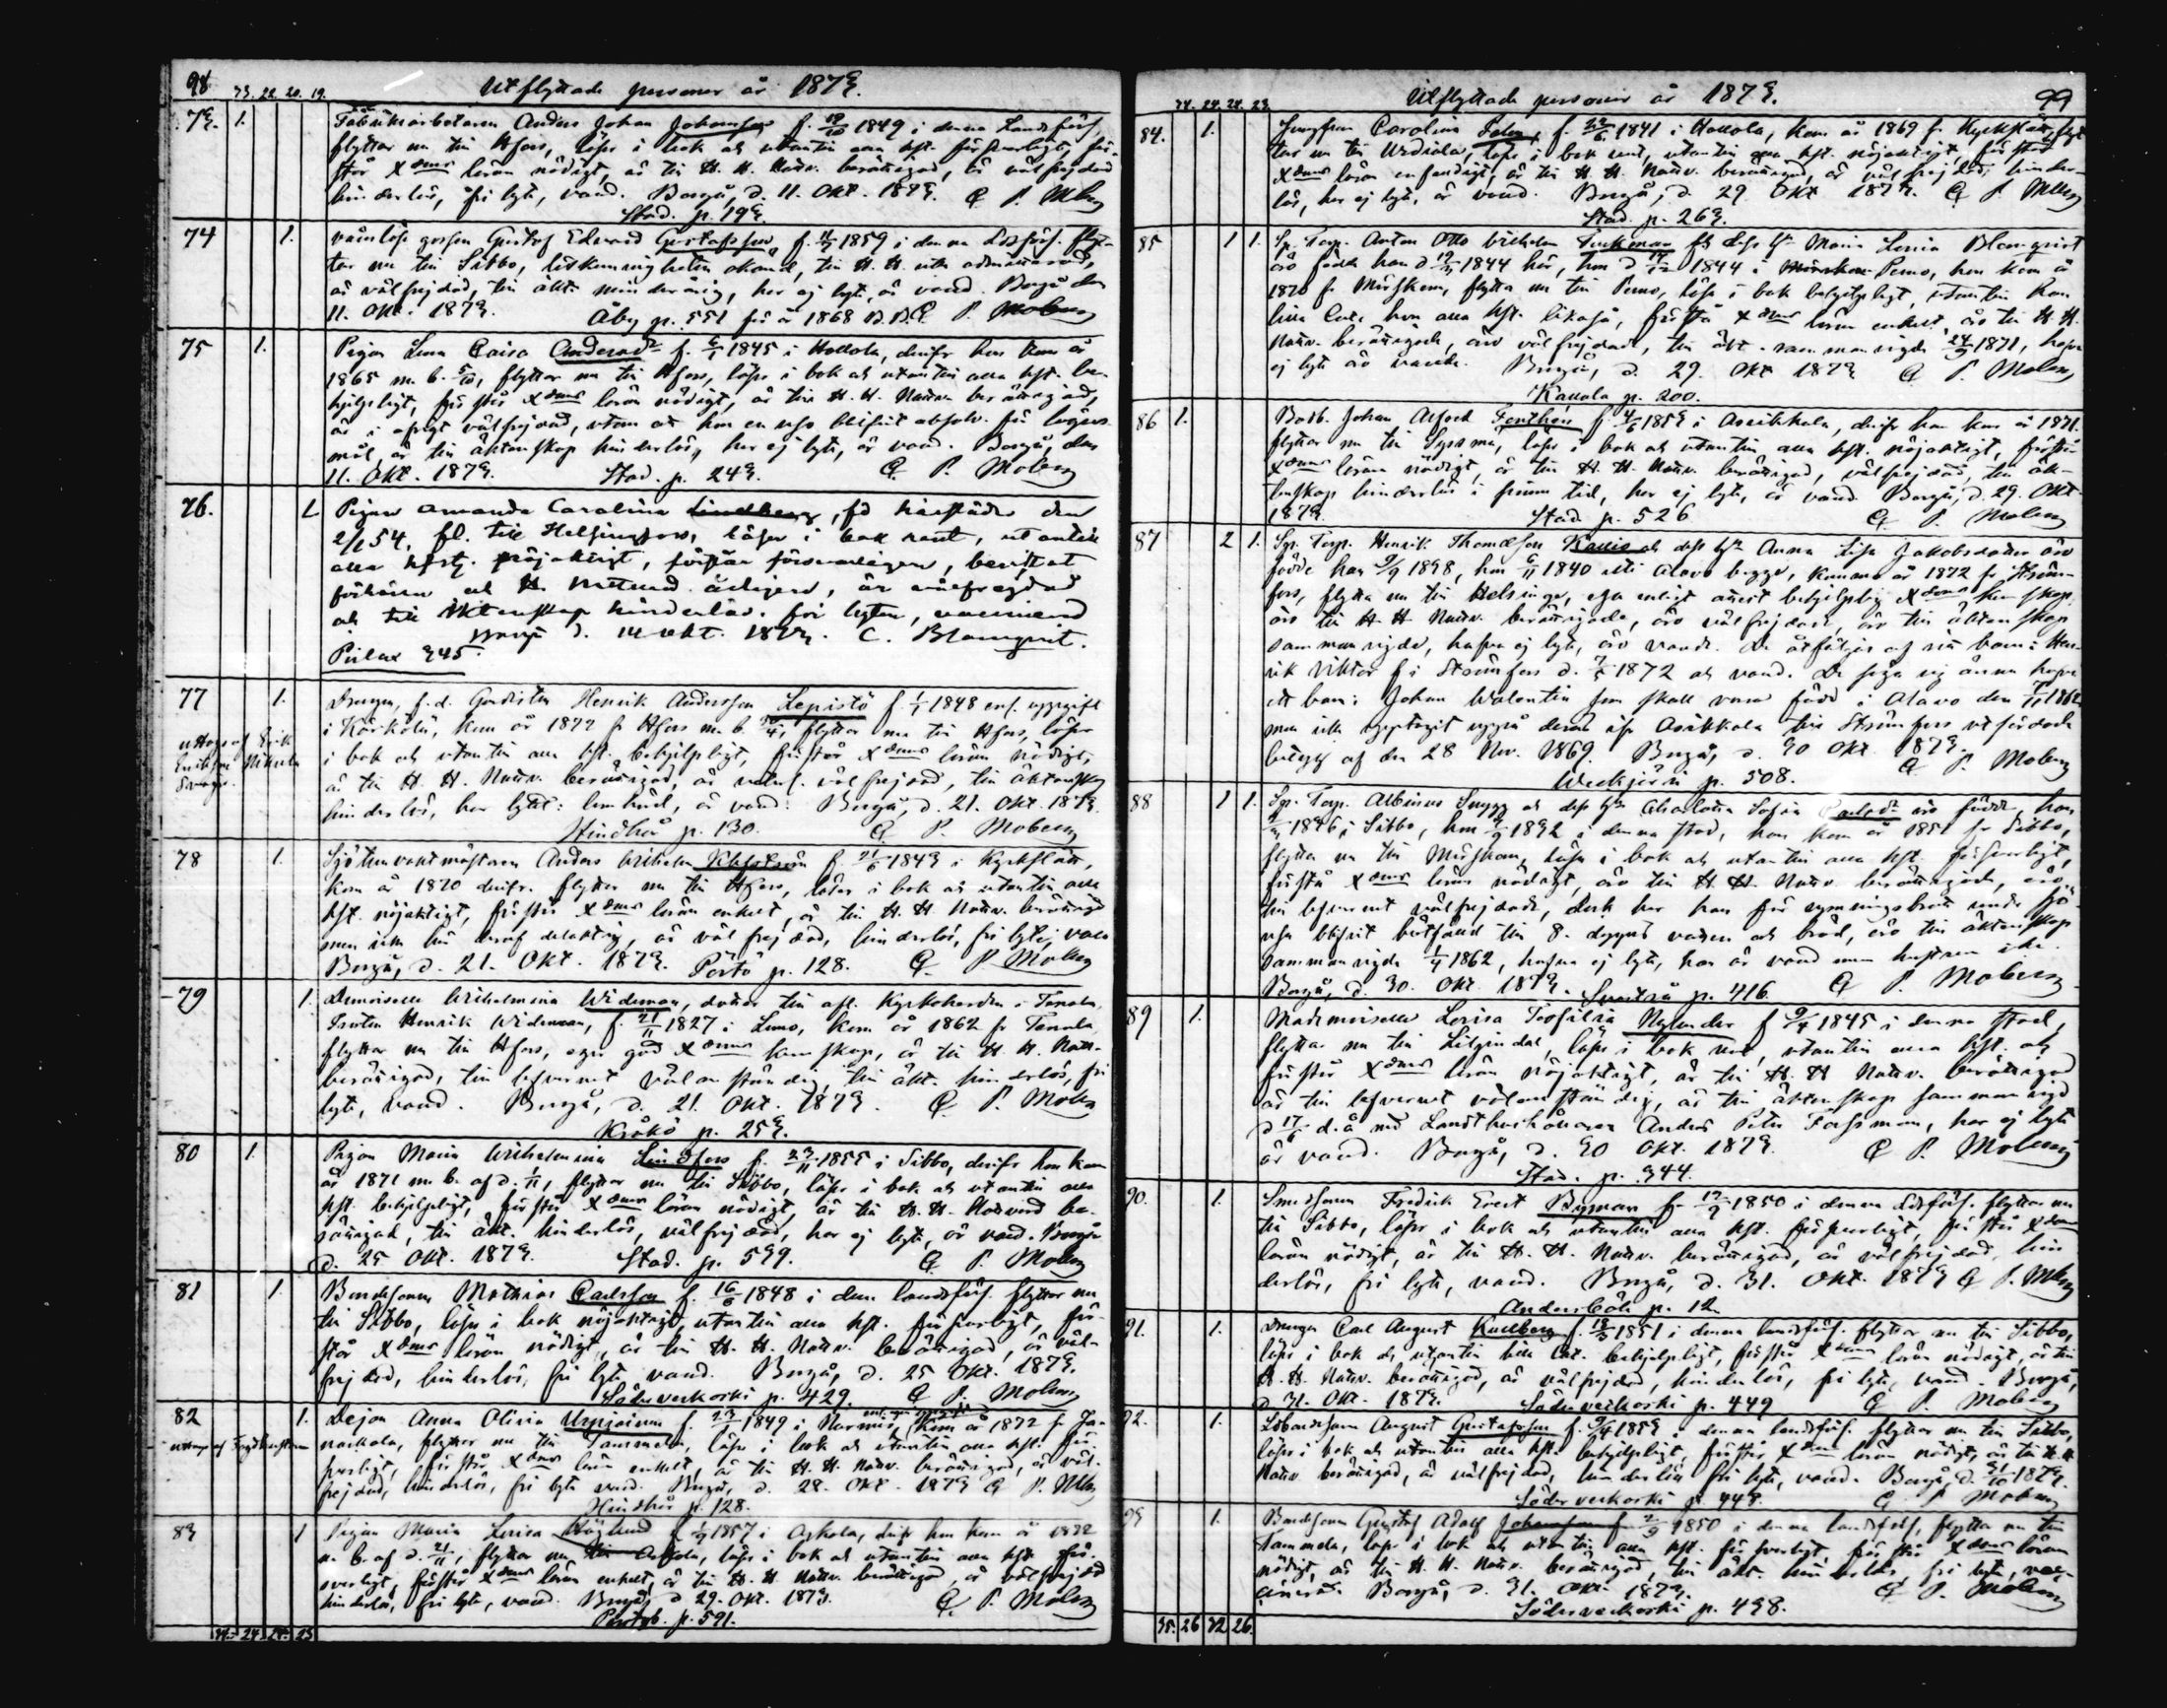 98
33. 22. 20. 19.
Utflyttade personer år 1873.
73. 1. Fabriksarbetaren Anders Johan Johansson f. 1849 i denna Landsförs.
flyttar nu till Hfors, läser i bok och utantill alla hst. försvarligt, för-
står Xdoms läran nödigt, är till H. H. Nattv. berättigad, är välfrejdad
hinderlös, fri lyte, vacc. Borgå, d. 11. Okt. 1873. P. Moberg
Stad. p. 193.
74 1. gossen Gustaf Edvard Gustafsson f. 1859 i denna Ldsförs. flyt-
tar nu till Sibbo, okänd, till H. H. admitterad,
är välfrejdad, till äkt. minderårig, har ej lyte, är vacc. Borgå den
11. Okt. 1873. Åby p. 551 för år 1868 P. Moberg
75 1. Pigan Lena Caisa Andersdr f. 1845 i Hollola, därifr. hon kom år
1865 m. b. 5/10, flyttar nu till Hfors, läser i bok och utantill alla hst. be-
hjelpligt, förstår Xdoms läran nödigt, är till H. H. Nattv. berättigad,
är i öfrigt välfrejdad, utom att hon en resa blifvit absolv. för lägers-
mål, är till äktenskap hinderlös, har ej lyte, är vacc. Borgå, den
11. Okt. 1873. Stad. p. 243. P. Moberg
76. 1 Pigan Amanda Carolina Lindberg, fd härstädes den
2/1 54, fl. till Helsingfors, läser i bok rent, utantill
alla hfst. nöjaktigt, förstår försvarligen, bevistat
förhören och H. Nattvard ärligen, är välfrejdad
och till äktenskap hinderlös, fri lyten, vaccinerad
Borgå d. 14 okt. 1873. C. Blomqvist.
Pirlax 345.
77 1. Drengen, f.d. Gardisten Henrik Andersson Lepistö f. 1/1 1848 enl. uppgift
i Kärkölä, kom år 1872 fr Hfors m. b. flyttar nu till Hfors, läser
i bok och utantill alla hst. behjelpligt, förstår Xdoms läran nödigt,
är till H. H. Nattv. berättigad, är välfrejdad, till äktenskap
hinderlös, har lyte: lomhörd, är vacc. Borgå, d. 21. Okt. 1873.
uttogs af Erik
Eriksson Mikkola
Drengen.
Hindhår p. 130. P. Moberg
78 1. Sjötullvaktmästaren Anders Wilhelm f. 21/6 1843 i Kyrkslätt,
kom år 1870 därifr. flyttar nu till Hfors, läser i bok och utantill alla
hst. nöjaktigt, förstår Xdoms läran enkelt, är till H. H. Nattv. berättigad
men icke här deraf delaktig, är välfrejdad, hinderlös, fri lyte, vacc
Borgå, d. 21. Okt. 1873. Pörtö p. 128. P. Moberg
79 1. Demoiselle Wilhelmina Wideman, dotter till afl. Kyrkoherden i Tenala
Torsten Henrik Wideman, f. 21/11 1827 i Lemo, kom år 1862 fr Tenala,
flyttar nu till Hfors, eger god Xdoms kunskap, är till H. H. Nattv.
berättigad, till lefvernet välanständig, till äkt. hinderlös, fri
lyte, vacc. Borgå, d. 21. Okt. 1873. P. Moberg
Kråkö p. 253.
80 1. Pigan Maria Wilhelmina Lindfors f. 23/11 1855 i Sibbo, därifr. hon kom
år 1871 m. b. af d. 1/11, flyttar nu till Sibbo, läser i bok och utantill alla
hst. behjelpligt, förstår Xdoms läran nödigt, är till H. H. Nattvard be-
rättigad, till äkt. hinderlös, välfrejdad, har ej lyte, är vacc. Borgå
d. 25 Okt. 1873. Stad. p. 599. P. Moberg
81 1. Bondsonen Mathias Carlsson f. 16/8 1848 i denna landsförs. flyttar nu
till Sibbo, läser i bok nöjaktigt, utantill alla hst. försvarligt, för-
står Xdoms läran nödigt, är till H. H. Nattv. berättigad, är väl-
frejdad, hinderlös, fri lyte, vacc. Borgå, d. 25 Okt. 1873.
Söder veckoski p. 429. P. Moberg
82 1. Dejan Anna Olivia f. 23/1 1849 i Nurmis, kom år 1872 fr Ja-
nakkala, flyttar nu till Tammela, läser i bok och utantill alla hst. för-
svarligt, förstår Xdoms läran enkelt, är till H. H. Nattv. berättigad, är väl-
frejdad, hinderlös, fri lyte vacc. Borgå, d. 28. Okt. 1873 P. Moberg
Hindhår p. 128.
83 1 Pigan Maria Lovisa Höglund f. 1857 i Askola, därifr. hon kom år 1872
m. b. af d. 21/11, flyttar nu till Askola, läser i bok och utantill alla hst. för-
svarligt, förstår Xdoms läran enkelt, är till H. H. Nattv. berättigad, är välfrejdad
hinderlös, fri lyte, vacc. Borgå, d. 29. Okt. 1873. P. Moberg
p. 591.
34. 24. 24. 23
Utflyttade personer år 1873.
99
34. 24. 24. 23.
84. 1. Jungfrun Carolina f. 1841 i Hollola, kom år 1869 fr Kyrkslätt, flyt-
tar nu till Urdiala, läser i bok rent, utantill alla hst. nöjaktigt, förstår
Xdoms läran enfaldigt, är till H. H. Nattv. berättigad, är välfrejdad, hinder-
lös, har ej lyte, är vacc. Borgå, d. 29 Okt 1873. P. Moberg
Stad. p. 263.
85 1 1. Sp. Torp. Anton Otto Wilhelm och dess hu Maria Lovisa Blomqvist
äro födda han d 1844 här, hon d 1844 i Perno, hon kom år
1870 fr Mörskom, flytta nu till Perno, läsa i bok behjelpligt, utantill han
lilla Cat. hon alla hst. likaså, förstå Xdoms läran enkelt, äro till H. H.
Nattv. berättigade, äro välfrejdade, till äkt. sammanvigde 24/9 1871, hafva
ej lyte äro vacc. Borgå, d. 29. Okt 1873 P. Moberg
Kallola p. 200.
86 1. Johan Alfred f. 4/6 1853 i Asikkala, därifr. han kom år 1871.
flyttar nu till Sysmä, läser i bok och utantill alla hst. nöjaktigt, förstår
Xdoms läran nödigt, är till H. H. Nattv. berättigad, välfrejdad, till äk-
tenskap hinderlös i sinom tid, har ej lyte, är vacc. Borgå, d. 29. Okt.
1873. Stad. p. 526 P. Moberg
87 2 1. Sp. Torp. Henrik Thomasson och dess hu Anna Lisa Jakobsdotter äro
födde han 9/9 1838, hon 6/11 1840 uti Alavo begge, kommo år 1872 fr Ström-
fors, flytta nu till Helsinge, ega enligt attest behjelplig Xdoms kunskap,
äro till H. H Nattv. berättigade, äro välfrejdade, äro till äktenskap
sammanvigde, hafva ej lyte, äro vacc. De åtföljas af sitt barn: Hen-
rik Viktor f i Strömfors d. 1872 och vacc. De säga sig ännu hafva
ett barn: Johan Walentin som skall vara född i Alavo den 1862,
men icke upptagit uppå deras ifr. Asikkala till Strömfors utfärdade
betyg af den 28 Nov. 1869. Borgå, d. 30 Okt 1873.
Weckjärvi p. 508. P. Moberg
88 1 1. Sp. Torp. Albinus Snygg och dess hu Charlotta Sofia äro födde, han
1836 i Sibbo, hon 1832 i denna stad, han kom år 1851 fr Sibbo,
flytta nu till Mörskom, läsa i bok och utantill alla hst. försvarligt,
förstå Xdoms läran nödigt, äro till H. H. Nattv. berättigade, äro
till lefvernet välfrejdade, dock har han för rymningsbrott under sjö-
resa blifvit bötfäld till 8 dygns vatten och bröd, äro till äktenskap
sammanvigde 1862, hafva ej lyte, han är vacc men hustrun icke.
Borgå, d. 30. Okt. 1873. p. 416 P. Moberg
89 1. Mademoiselle Lovisa Teofilia Nylander f 9/4 1845 i denna stad,
flyttar nu till Liljendal, läser i bok rent, utantill alla hst. och
förstår Xdoms läran nöjaktigt, är till H. H Nattv. berättigad
är till lefvernet välanständig, är till äktenskap sammanvigd
d 17/6 d.å med Landthushållaren Anders Petter Forssman, har ej lyte
är vacc. Borgå, d. 30 Okt. 1873. P. Moberg
Stad. p. 344.
90. 1. Smedsonen Fredrik Evert Byman f. 1850 i denna Ldsförs. flyttar nu
till Sibbo, läser i bok och utantill alla hst. försvarligt, förstår Xdoms
läran nödigt, är till H. H. Nattv. berättigad, är välfrejdad, hin
derlös, fri lyte, vacc. Borgå, d. 31. Okt. 1873 P. Moberg
Andersböle p. 12.
91. 1. Drengen Carl August Kullberg f. 1851 i denna landsförs. flyttar nu till Sibbo,
läser i bok och utantill lilla cat. behjelpligt, förstår Xdoms läran nödigt, är till
H. H. Nattv. berättigad, är välfrejdad, hinderlös, fri lyte, vacc. Borgå,
d. 31. Okt. 1873. Söder veckoski p. 449 P. Moberg
92. 1. August Gustafsson f. 1853 i denna landsförs. flyttar nu till Sibbo,
läser i bok och utantill alla hst. behjelpligt, förstår Xdoms läran nödigt, är till H. H
Nattv. berättigad, är välfrejdad, hinderlös fri lyte, vacc. Borgå, d. 31/10 1873.
Söder veckoski p. 443. P. Moberg
93 1. Bondsonen Gustaf Adolf Johansson f. 1850 i denna landsförs, flyttar nu till
Tammela, läser i bok och utantill alla hst. försvarligt förstår Xdoms läran
nödigt, är till H. H. Nattv. berättigad, till äkt. hinderlös, fri lyte, vac-
cinerad. Borgå, d. 31. Okt. 1873. P. Moberg
Söderveckoski p. 438.
35. 26 32 26.